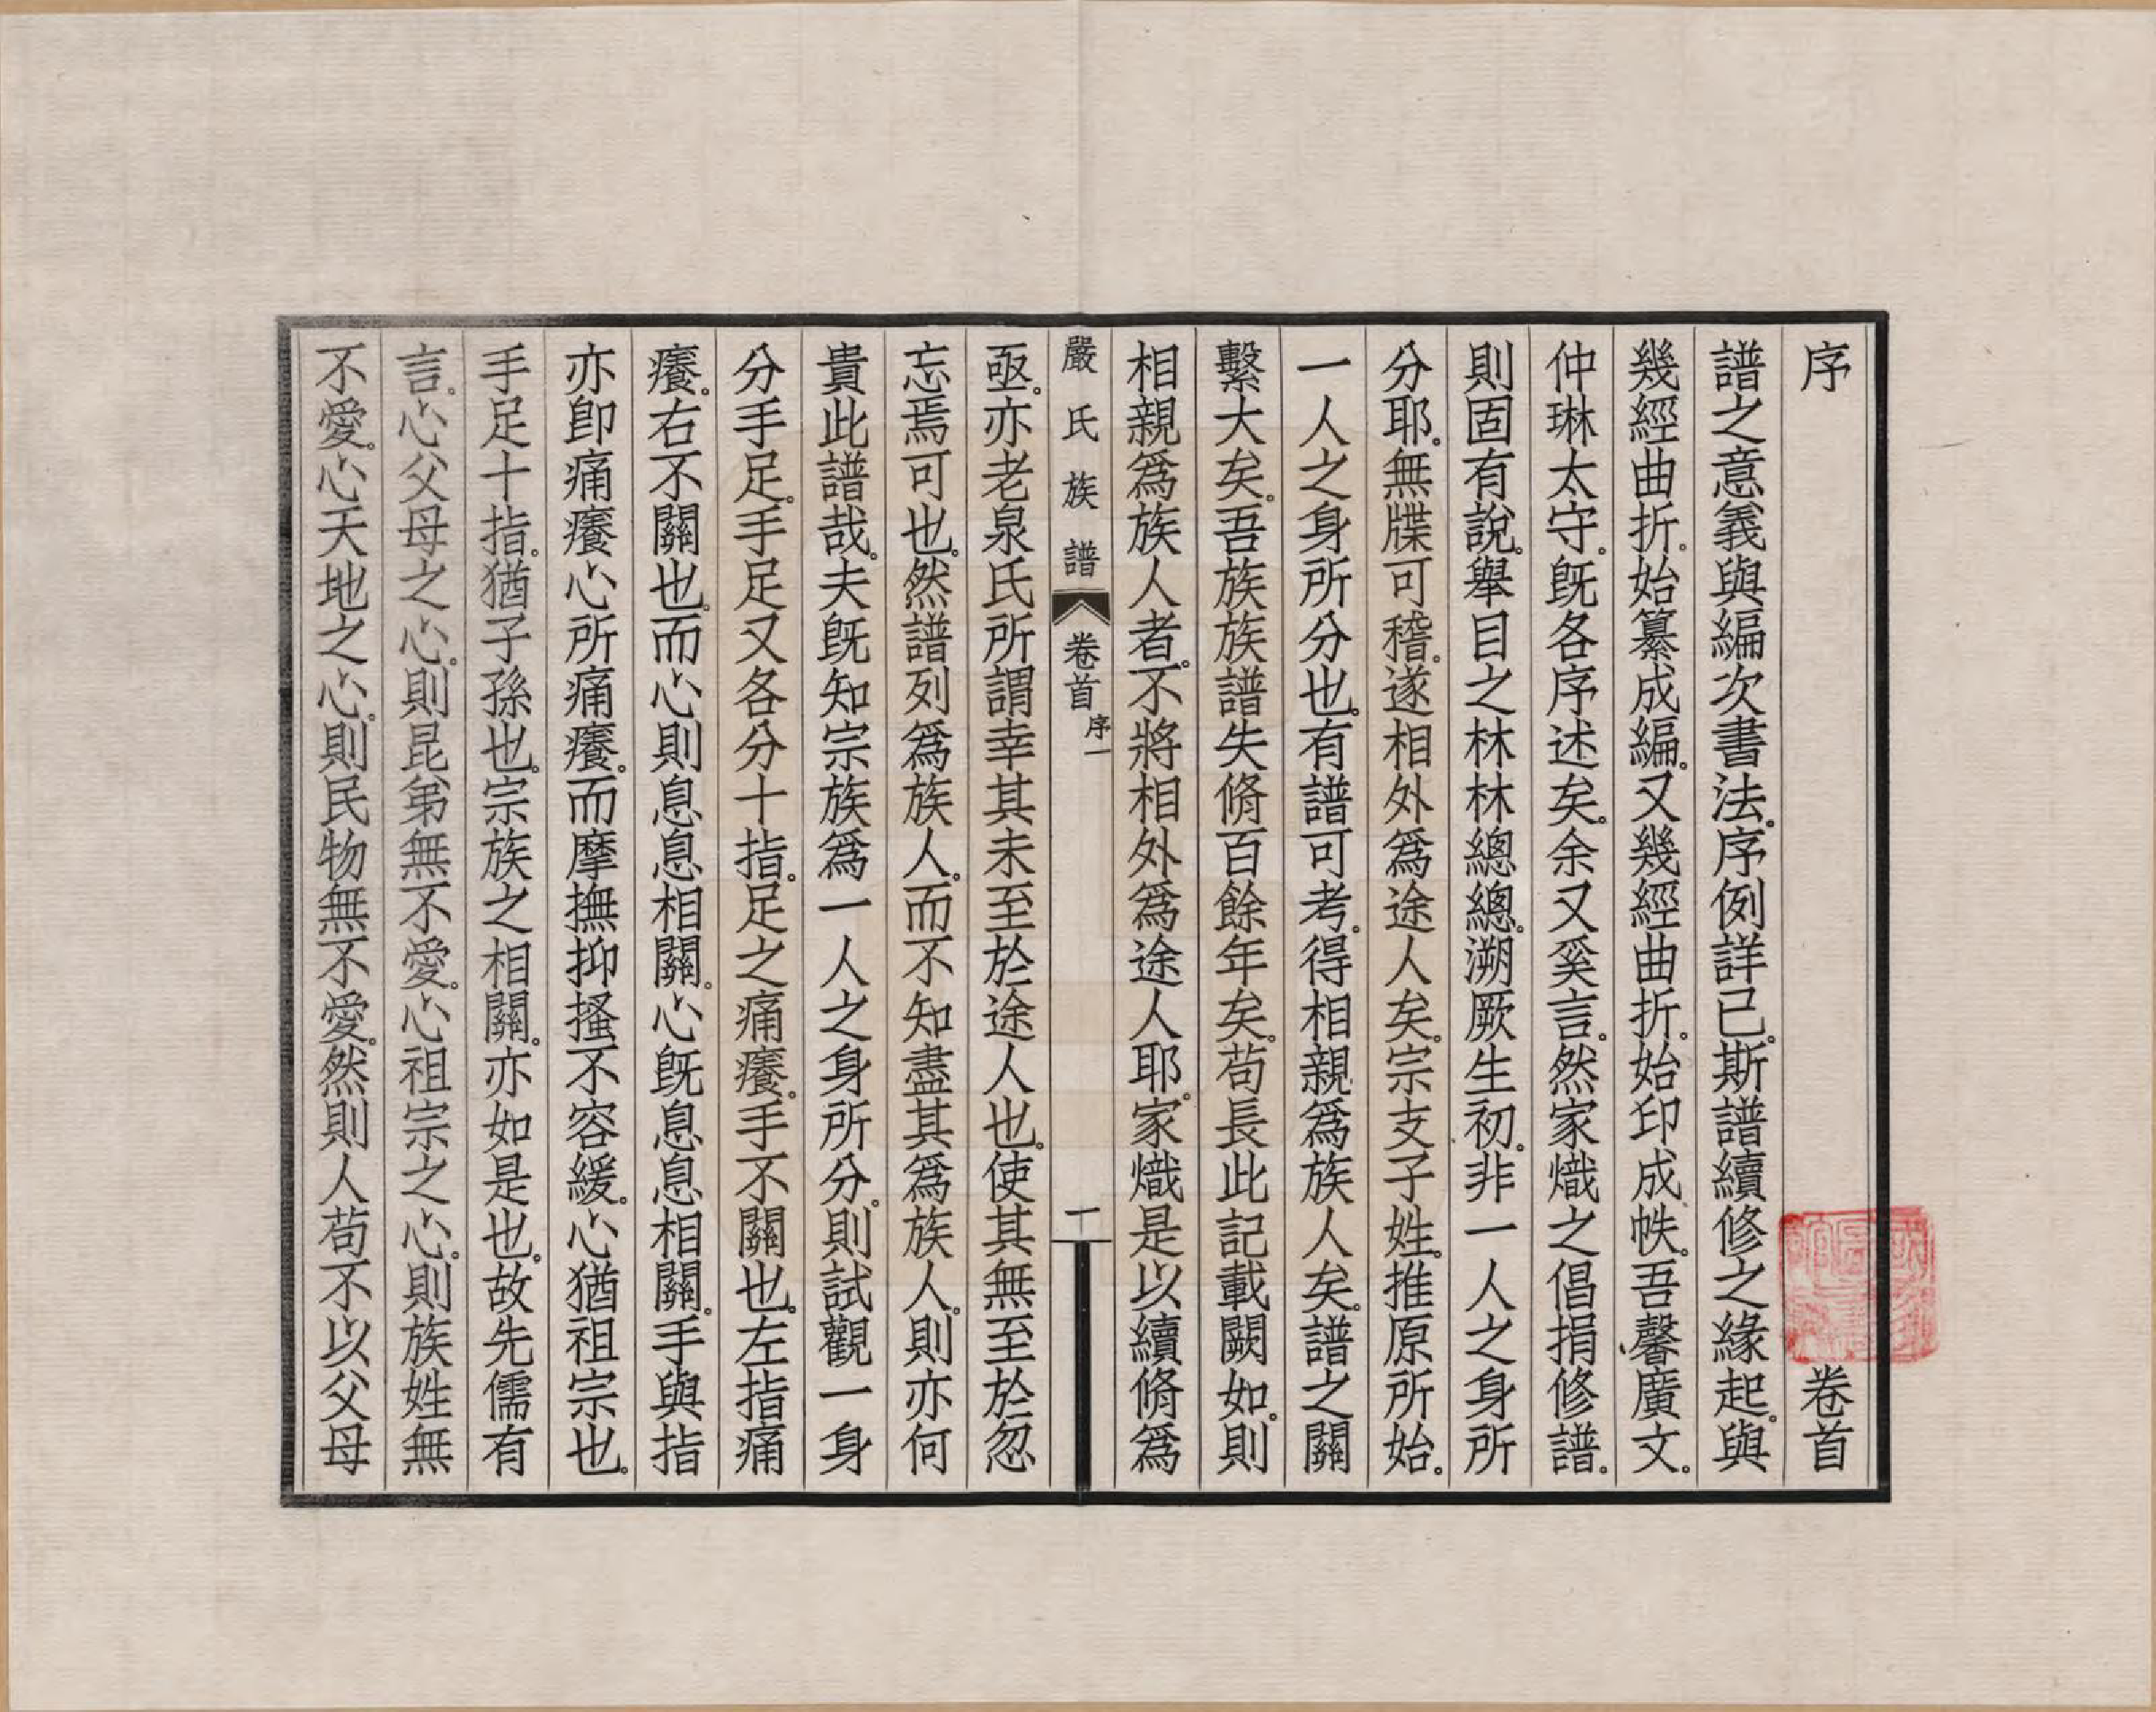 序　卷首
譜之意義與編次書法。序例詳已。斯譜續修之緣起。與
幾經曲折。始纂成編。又幾經曲折。始印成帙。吾馨廣文。
仲琳太守。既各序述矣。余又奚言。然家熾之倡捐修譜。
則固有說。舉目之林林總總。溯厥生初。非一人之身所
分耶。無牒可稽。遂相外爲途人矣。宗支子姓。推原所始。
一人之身所分也。有譜可考。得相親爲族人矣。譜之關
繫大矣。吾族族譜失脩百餘年矣。苟長此記載闕如。則
相親爲族人者。不將相外爲途人耶。家熾是以續脩爲
嚴氏族譜　卷首　序一　一
亟。亦老泉氏所謂幸其未至於途人也。使其無至於忽
忘焉可也。然譜列爲族人。而不知盡其爲族人。則亦何
貴此譜哉。夫既知宗族爲一人之身所分。則試觀一身
分手足。手足又各分十指。足之痛癢。手不關也。左指痛
癢。右不關也。而心則息息相關。心既息息相關。手與指
亦卽痛癢心所痛癢。而摩撫抑搔不容緩。心猶祖宗也。
手足十指。猶子孫也。宗族之相關。亦如是也。故先儒有
言。心父母之心。則昆弟無不愛。心祖宗之心。則族姓無
不愛。心天地之心。則民物無不愛。然則人苟不以父母